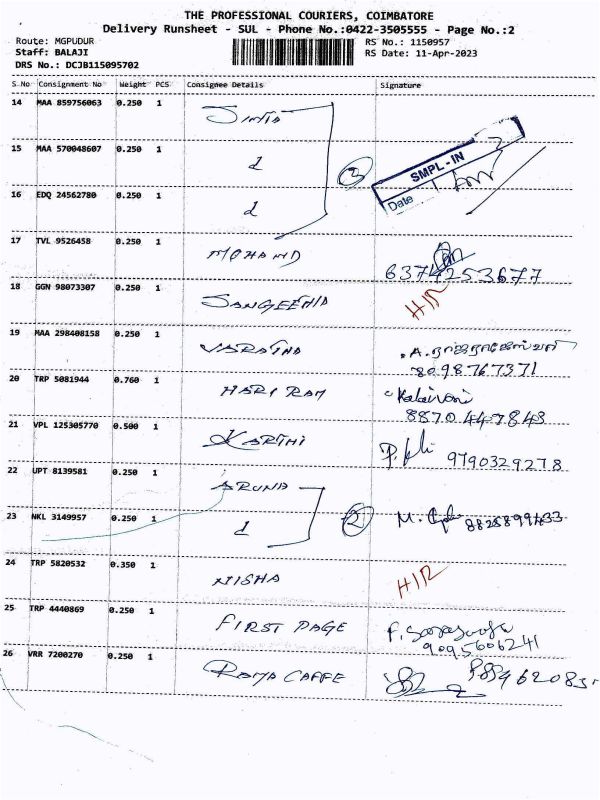 THE PROFESSIONAL COURIERS, COIMBATORE
Delivery Runsheet - SUL - Phone No.:0422-3505555 - Page No.:2
Route: MGPUDUR RS No.: 1150957
Staff: BALAJI RS Date: 11-Apr-2023
DRS No.: DCJB115095702
S No Consignment No Weight PCS Consignee Details Signature
14 MAA 859756063 0.250 1
15 MAA 570048607 0.250 1
SMPL-IN
Date
3
16 EDQ 24562780 0.250 1
17 TVL 9526458 0.250 1 MOHAND
6374253677
18 GGN 98073307 0.250 1 SANGEETHA H/R
19 MAA 298408158 0.250 1 VARATHA A.
8098767371
20 TRP 5081944 0.760 1 HARI RAM Kalaivani
8870447843
21 VPL 125305770 0.500 1 KARTHI 9790329278
22 UPT 8139581 0.250 1 ARUNA
2
23 NKL 3149957 0.250 1 M. 8825899433
24 TRP 5820532 0.350 1 NISHA H/R
25 TRP 4440869 0.250 1 FIRST PAGE
9095606241
26 VRR 7200270 0.250 1 ROMA CAFFE